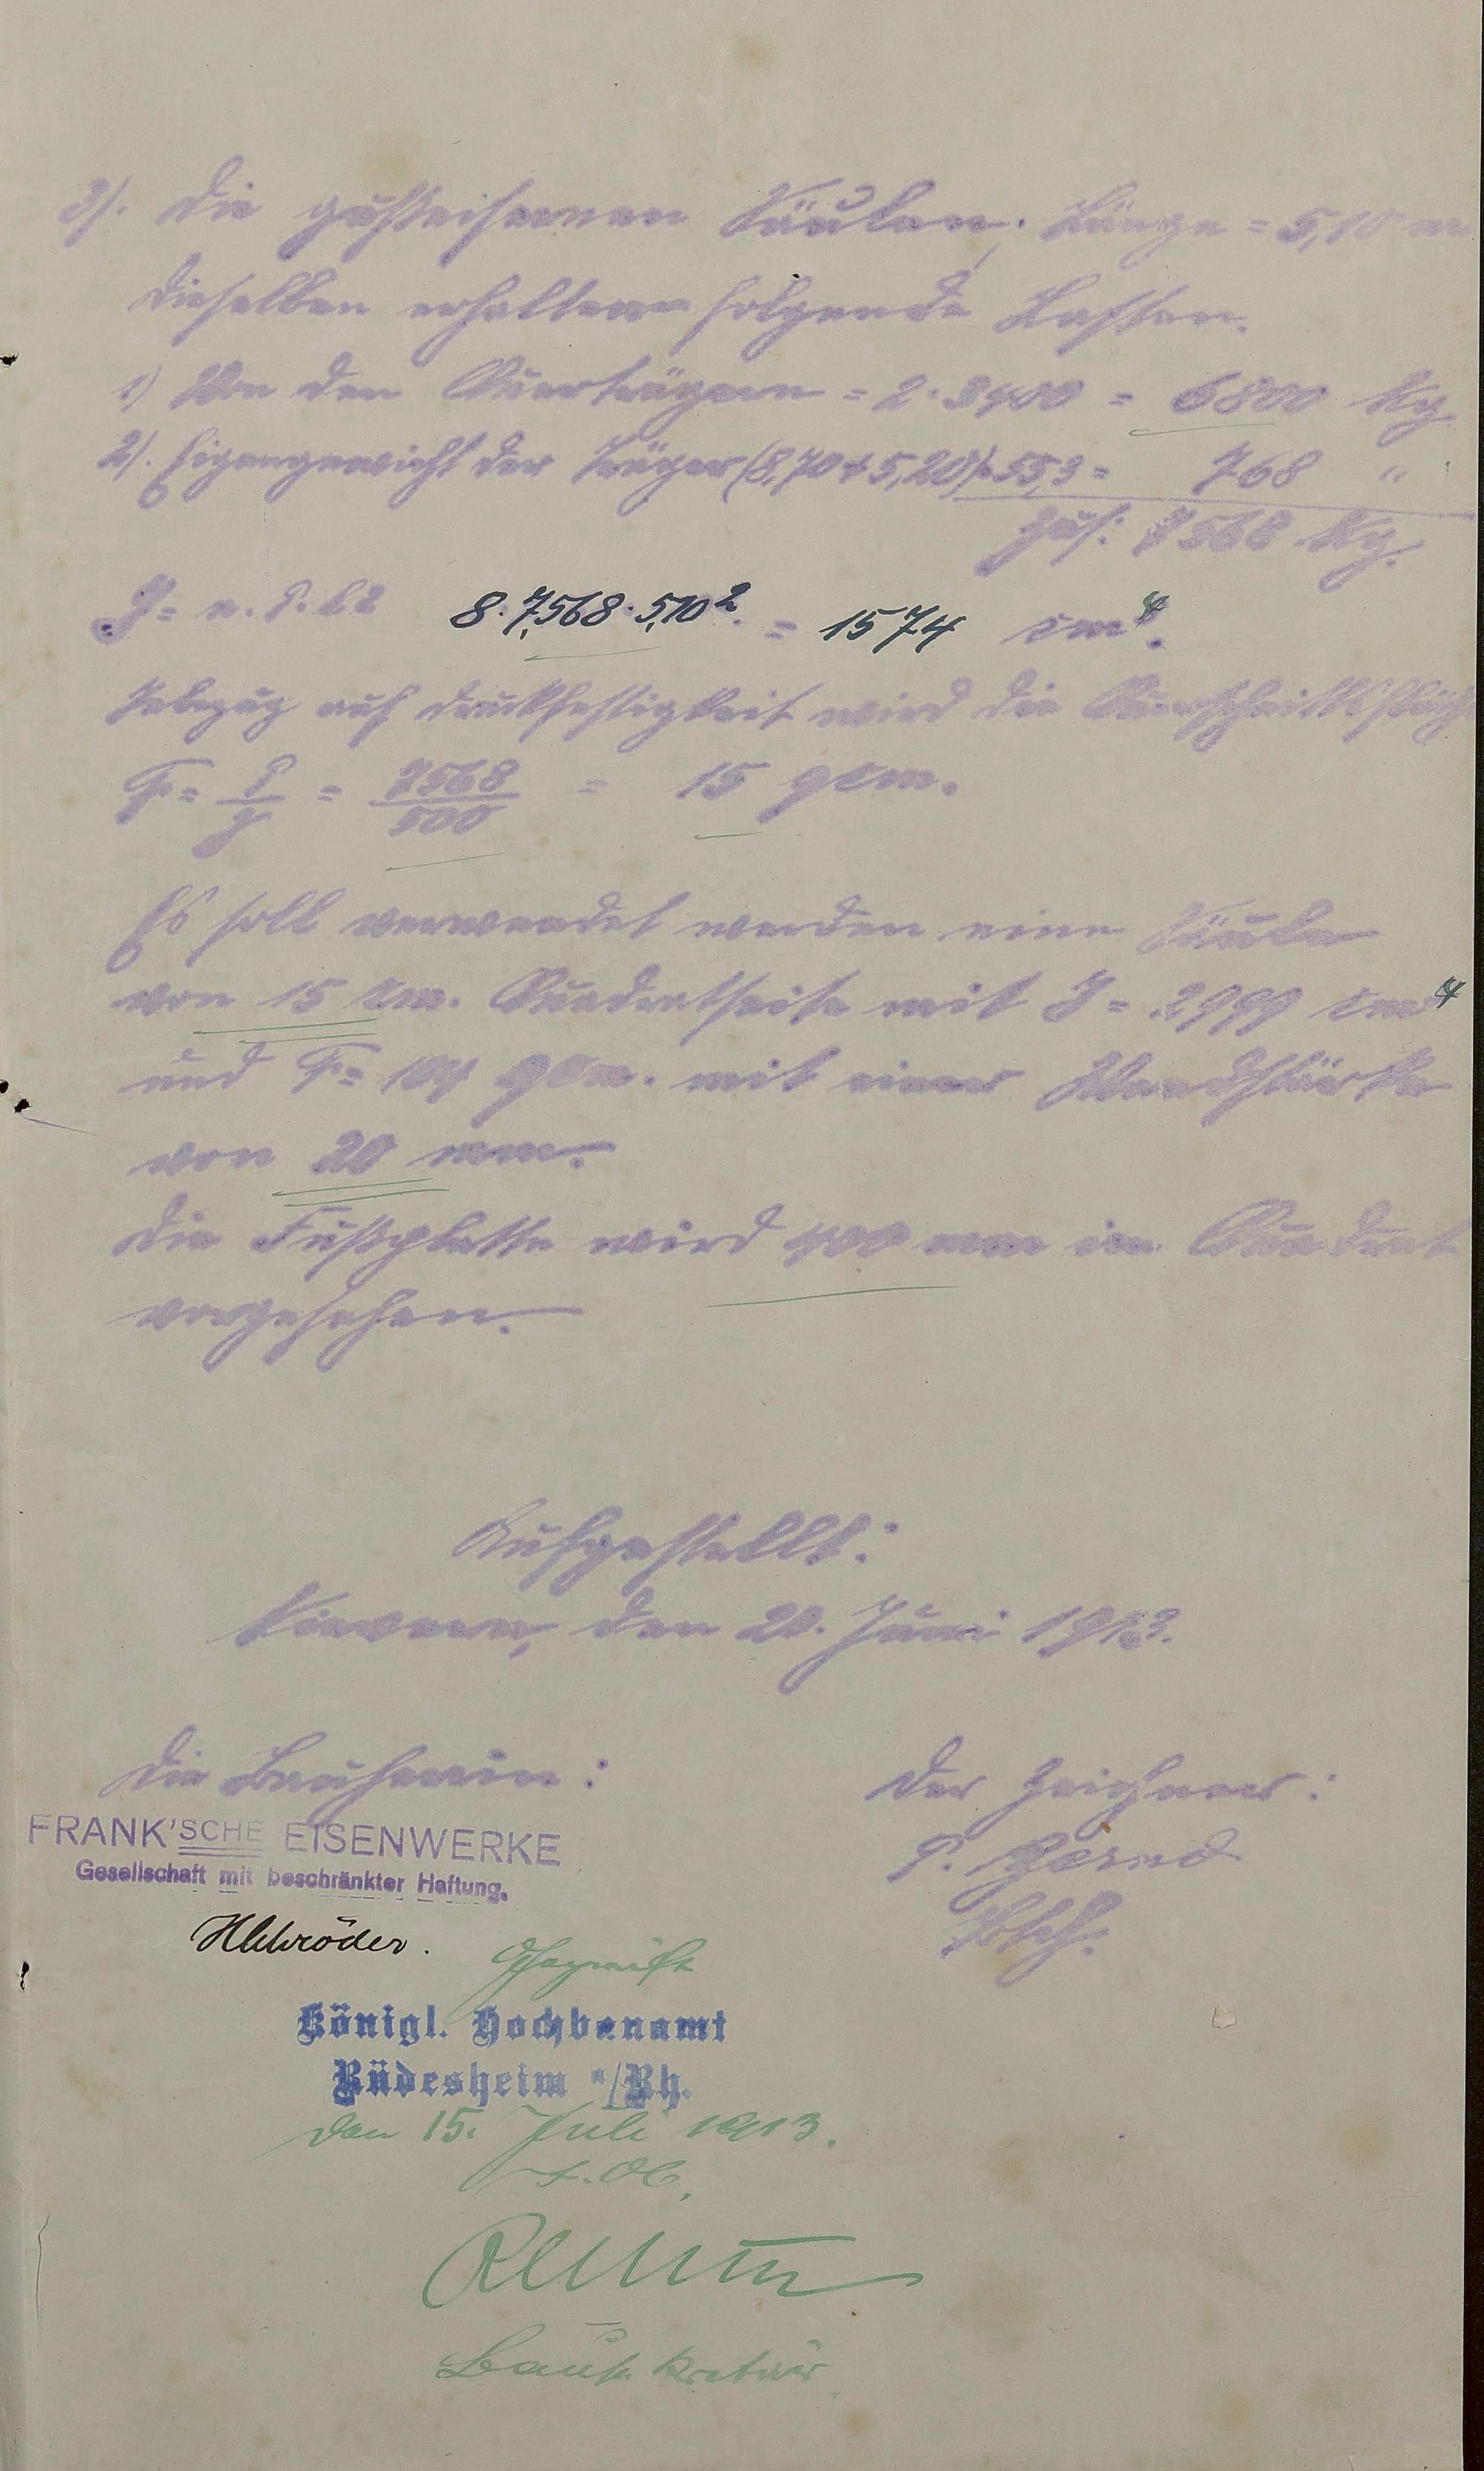 3). Die gußeisernen Säulen, Länge = 5,10 m
Dieselben erhalten folgende Lasten.
1) Von den Querträgern = 2·3400 = 6800 Kg
2). Eigengewicht der Träger (8,70+5,20)·55,3 = 768 "
Zus: 7568 Kg.
J = n. P. l2 8·7,568·5,10² = 1574 cm⁴.
Inbezug auf Druckfestigkeit wird die Querschnittsfläche
F = P/σ = 7568/500 = 15 qcm.
Es soll verwendet werden eine Säule
von 15 cm. Quadratseite mit J = 2999 cm⁴
und F = 104 qcm. mit einer Wandstärke
von 20 mm.
Die Fußplatte wird 400 mm im Quadrat
vorgesehen.
Aufgestellt:
Nievern, den 20. Juni 1913.
Die Bauherrin:
Der Zeichner:
FRANK'SCHE EISENWERKE
Gesellschaft mit beschränkter Haftung.
HSchröder.
Geprüft
Königl. Hochbauamt
Rüdesheim a/Rh.
den 15. Juli 1913.
Bausekretär